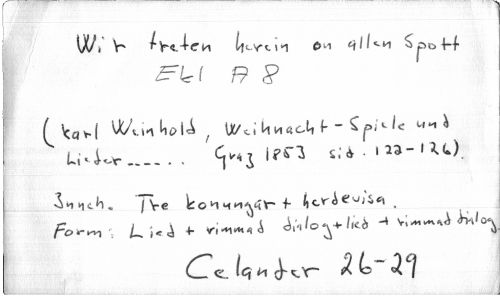 Wir treten herein on allen Spott
Ekl A8
(Karl Weinhold, Weihnacht-Spiele und
Lieder...... Graz 1853 sid. 122-126).
Inneh. Tre konungar + herdevisa.
Form: Lied + rimmad dialog + lied + rimmad dialog
Celander 26-29